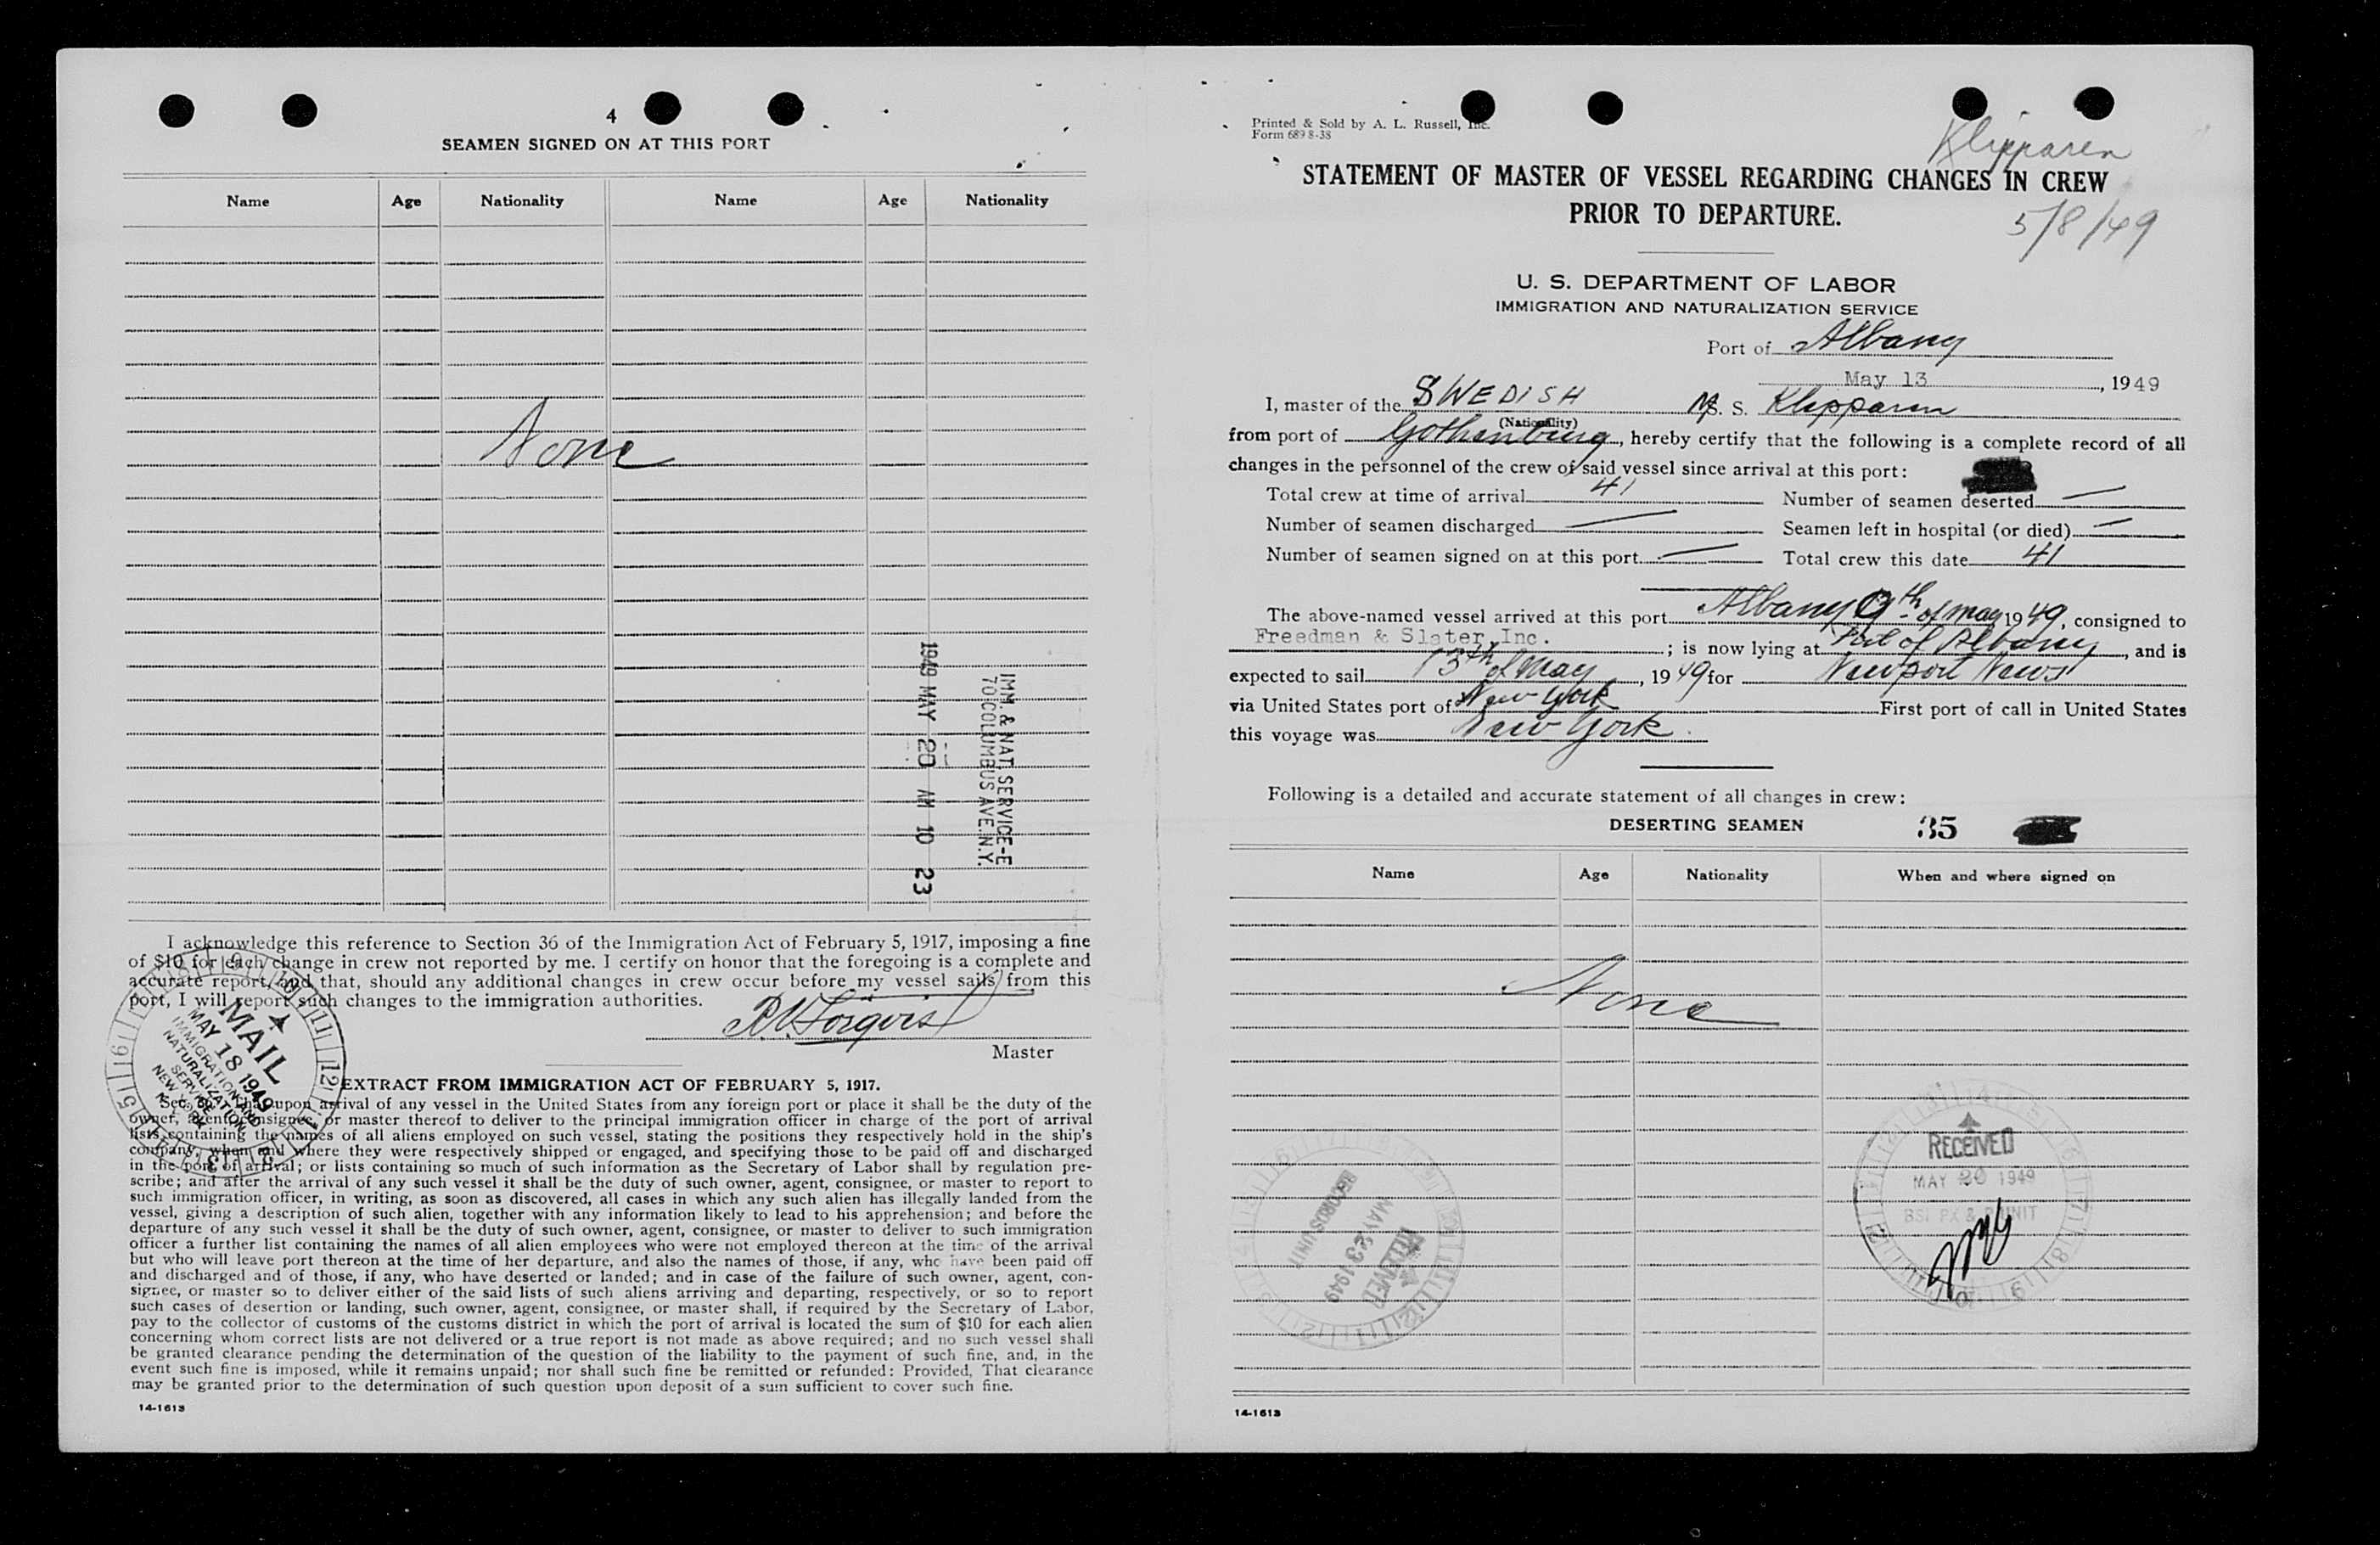 4
SEAMEN SIGNED ON AT THIS PORT
Name Age Nationality Name Age Nationality
None
1949 MAY 20 AM 10 23
IMM. & NAT. SERVICE-E
70 COLUMBUS AVE. N.Y.
I acknowledge this reference to Section 36 of the Immigration Act of February 5, 1917, imposing a fine
of $10 for each change in crew not reported by me. I certify on honor that the foregoing is a complete and
accurate report, and that, should any additional changes in crew occur before my vessel sails from this
port, I will report such changes to the immigration authorities.
Master
MAIL
MAY 18 1949
IMMIGRATION AND
NATURALIZATION
SERVICE
NEW YORK
EXTRACT FROM IMMIGRATION ACT OF FEBRUARY 5, 1917.
Sec. 36. That upon arrival of any vessel in the United States from any foreign port or place it shall be the duty of the
owner, agent, consignee, or master thereof to deliver to the principal immigration officer in charge of the port of arrival
lists containing the names of all aliens employed on such vessel, stating the positions they respectively hold in the ship's
company, when and where they were respectively shipped or engaged, and specifying those to be paid off and discharged
in the port of arrival; or lists containing so much of such information as the Secretary of Labor shall by regulation pre-
scribe; and after the arrival of any such vessel it shall be the duty of such owner, agent, consignee, or master to report to
such immigration officer, in writing, as soon as discovered, all cases in which any such alien has illegally landed from the
vessel, giving a description of such alien, together with any information likely to lead to his apprehension; and before the
departure of any such vessel it shall be the duty of such owner, agent, consignee, or master to deliver to such immigration
officer a further list containing the names of all alien employees who were not employed thereon at the time of the arrival
but who will leave port thereon at the time of her departure, and also the names of those, if any, who have been paid off
and discharged and of those, if any, who have deserted or landed; and in case of the failure of such owner, agent, con-
signee, or master so to deliver either of the said lists of such aliens arriving and departing, respectively, or so to report
such cases of desertion or landing, such owner, agent, consignee, or master shall, if required by the Secretary of Labor,
pay to the collector of customs of the customs district in which the port of arrival is located the sum of $10 for each alien
concerning whom correct lists are not delivered or a true report is not made as above required; and no such vessel shall
be granted clearance pending the determination of the question of the liability to the payment of such fine, and, in the
event such fine is imposed, while it remains unpaid; nor shall such fine be remitted or refunded: Provided, That clearance
may be granted prior to the determination of such question upon deposit of a sum sufficient to cover such fine.
14-1613
Printed & Sold by A. L. Russell, Inc.
Form 689 8-38
Klipparen
STATEMENT OF MASTER OF VESSEL REGARDING CHANGES IN CREW
PRIOR TO DEPARTURE.
5/8/49
U. S. DEPARTMENT OF LABOR
IMMIGRATION AND NATURALIZATION SERVICE
Port of Albany
May 13, 1949
I, master of the SWEDISH M. S. Klipparen
(Nationality)
from port of Gothenburg, hereby certify that the following is a complete record of all
changes in the personnel of the crew of said vessel since arrival at this port:
Total crew at time of arrival 41 Number of seamen deserted —
Number of seamen discharged — Seamen left in hospital (or died) —
Number of seamen signed on at this port — Total crew this date 41
The above-named vessel arrived at this port Albany th of May 1949, consigned to
Freedman & Slater, Inc. ; is now lying at Port of Albany, and is
expected to sail 13th of May, 1949 for Newport News
via United States port of New York First port of call in United States
this voyage was New York.
Following is a detailed and accurate statement of all changes in crew:
DESERTING SEAMEN 35
Name Age Nationality When and where signed on
None
RECEIVED
MAY 20 1949
RECEIVED
MAY 23 1949
RECORDS UNIT
14-1613